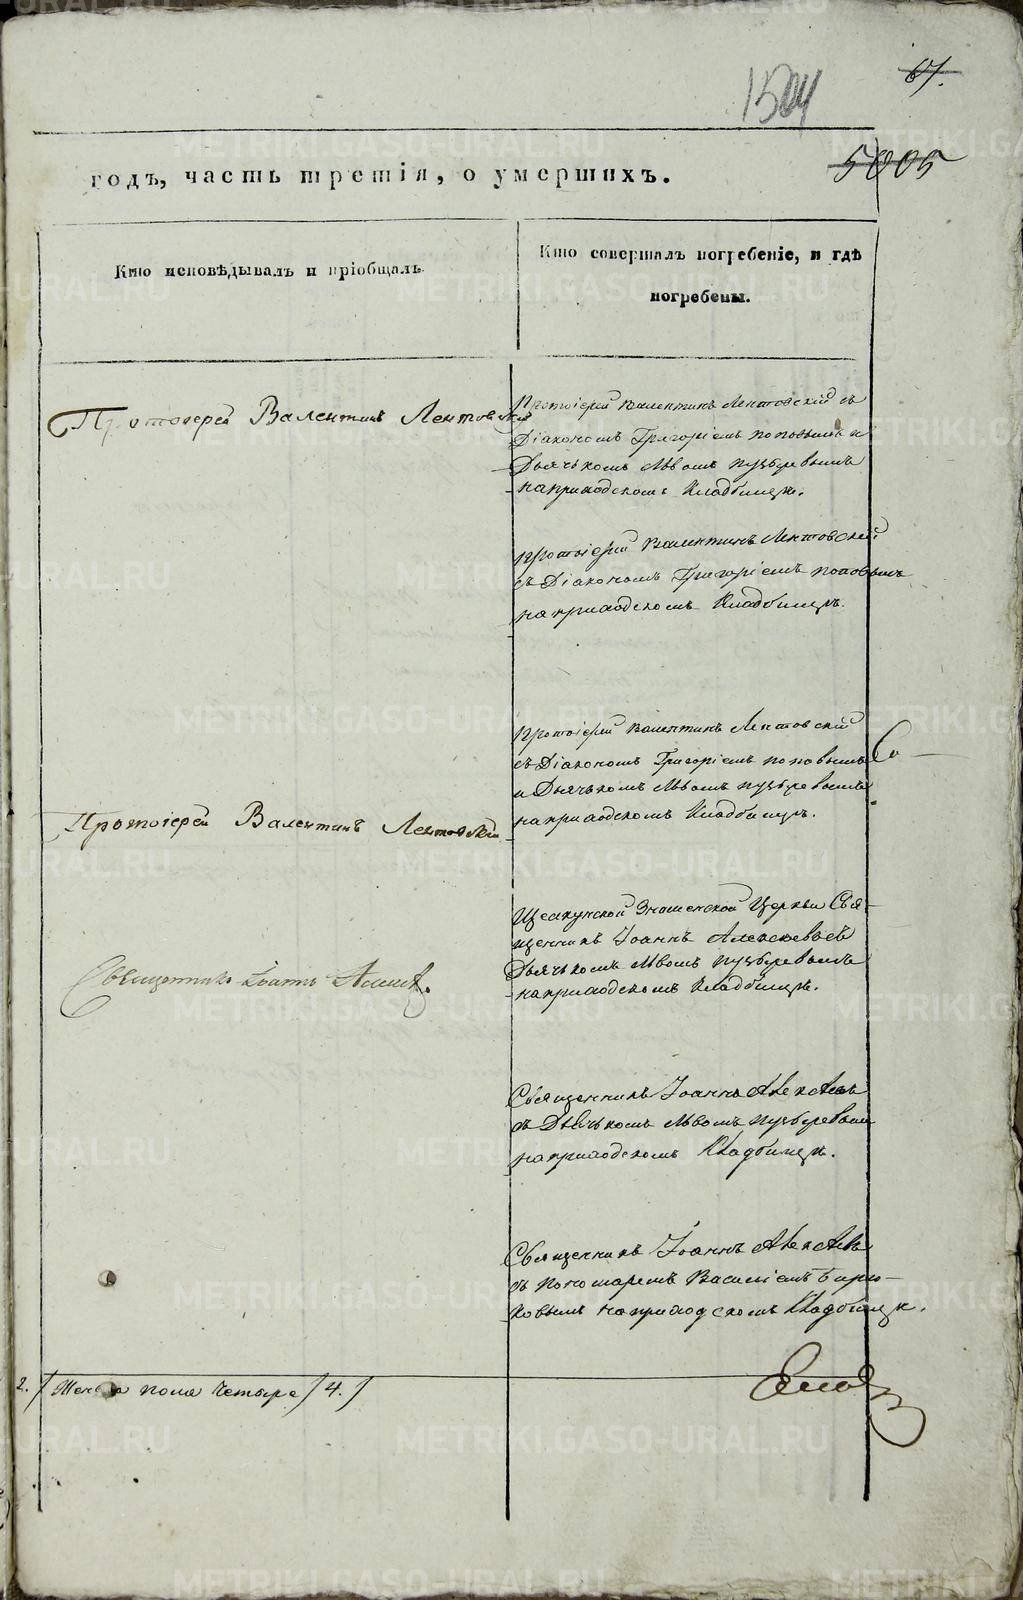 67.
1504
5005
годъ, часть третія, о умершихъ.
Кто исповѣдывалъ и пріобщалъ
Кто совершалъ погребеніе, и гдѣ
погребены.
Протоіерей Валентинъ Лентовскій
Протоіерей Валентинъ Лентовскій съ
Діакономъ Григоріемъ Поповымъ и
Дьячькомъ Львомъ
на приходскомъ Кладбищѣ.
Протоіерей Валентинъ Лентовскій
съ Діакономъ Григоріемъ Поповымъ
на приходскомъ Кладбищѣ.
Протоіерей Валентинъ Лентовскій
съ Діакономъ Григоріемъ Поповымъ
и Дьячькомъ Львомъ
на приходскомъ Кладбищѣ.
Протоіерей Валентинъ Лентовскій
Знаменской Церкви Свя-
щенникъ Іоаннъ Алексѣевъ съ
Дьячькомъ Львомъ
на приходскомъ Кладбищѣ.
Священникъ Іоаннъ
Священникъ Іоаннъ Алексѣевъ
съ Дьячькомъ Львомъ
на приходскомъ Кладбищѣ.
Священникъ Іоаннъ Алексѣевъ
съ пономаремъ Василіемъ Бирю-
ковымъ на приходскомъ Кладбищѣ.
2./ Женска пола Четыре /4./
METRIKI.GASO-URAL.RU